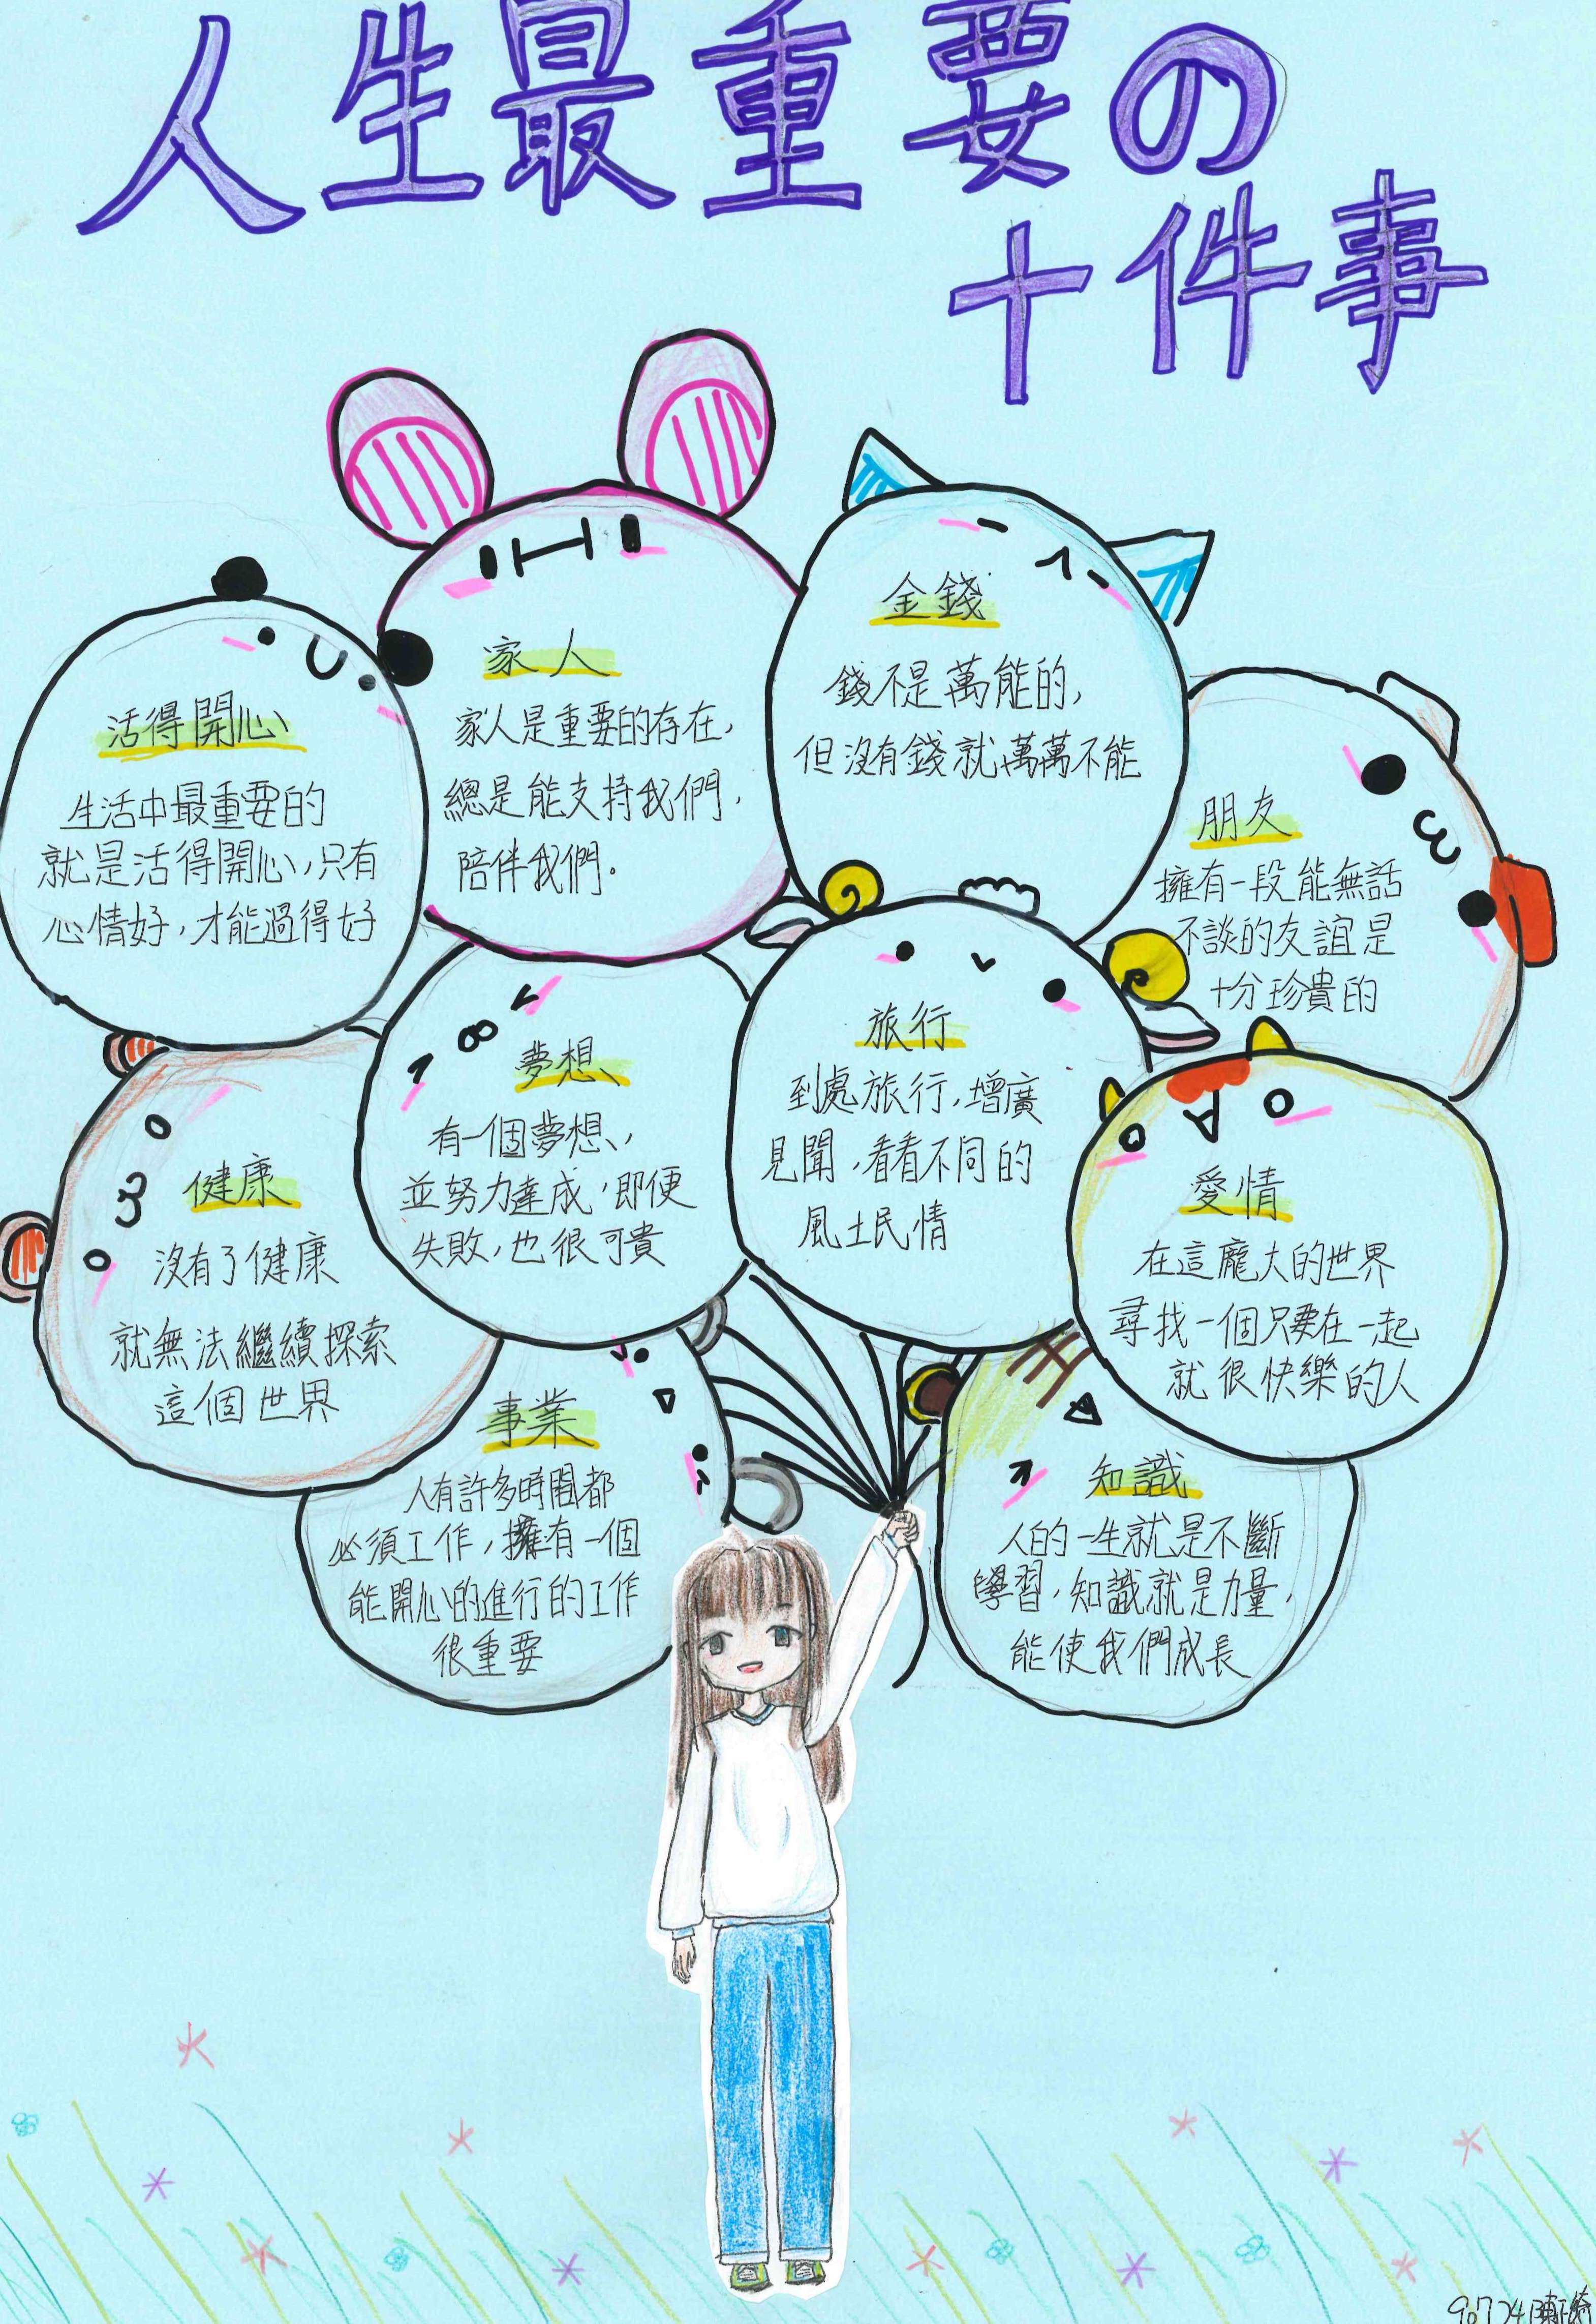 人生最重要の
十件事
活得開心
生活中最重要的
就是活得開心,只有
心情好,才能過得好
家人
家人是重要的存在,
總是能支持我們,
陪伴我們。
金錢
錢不是萬能的,
但沒有錢就萬萬不能
朋友
擁有一段能無話
不談的友誼是
十分珍貴的
健康
沒有了健康
就無法繼續探索
這個世界
夢想
有一個夢想,
並努力達成,即便
失敗,也很可貴
旅行
到處旅行,增廣
見聞,看看不同的
風土民情
愛情
在這龐大的世界
尋找一個只要在一起
就很快樂的人
事業
人有許多時間都
必須工作,擁有一個
能開心的進行的工作
很重要
知識
人的一生就是不斷
學習,知識就是力量,
能使我們成長
90724